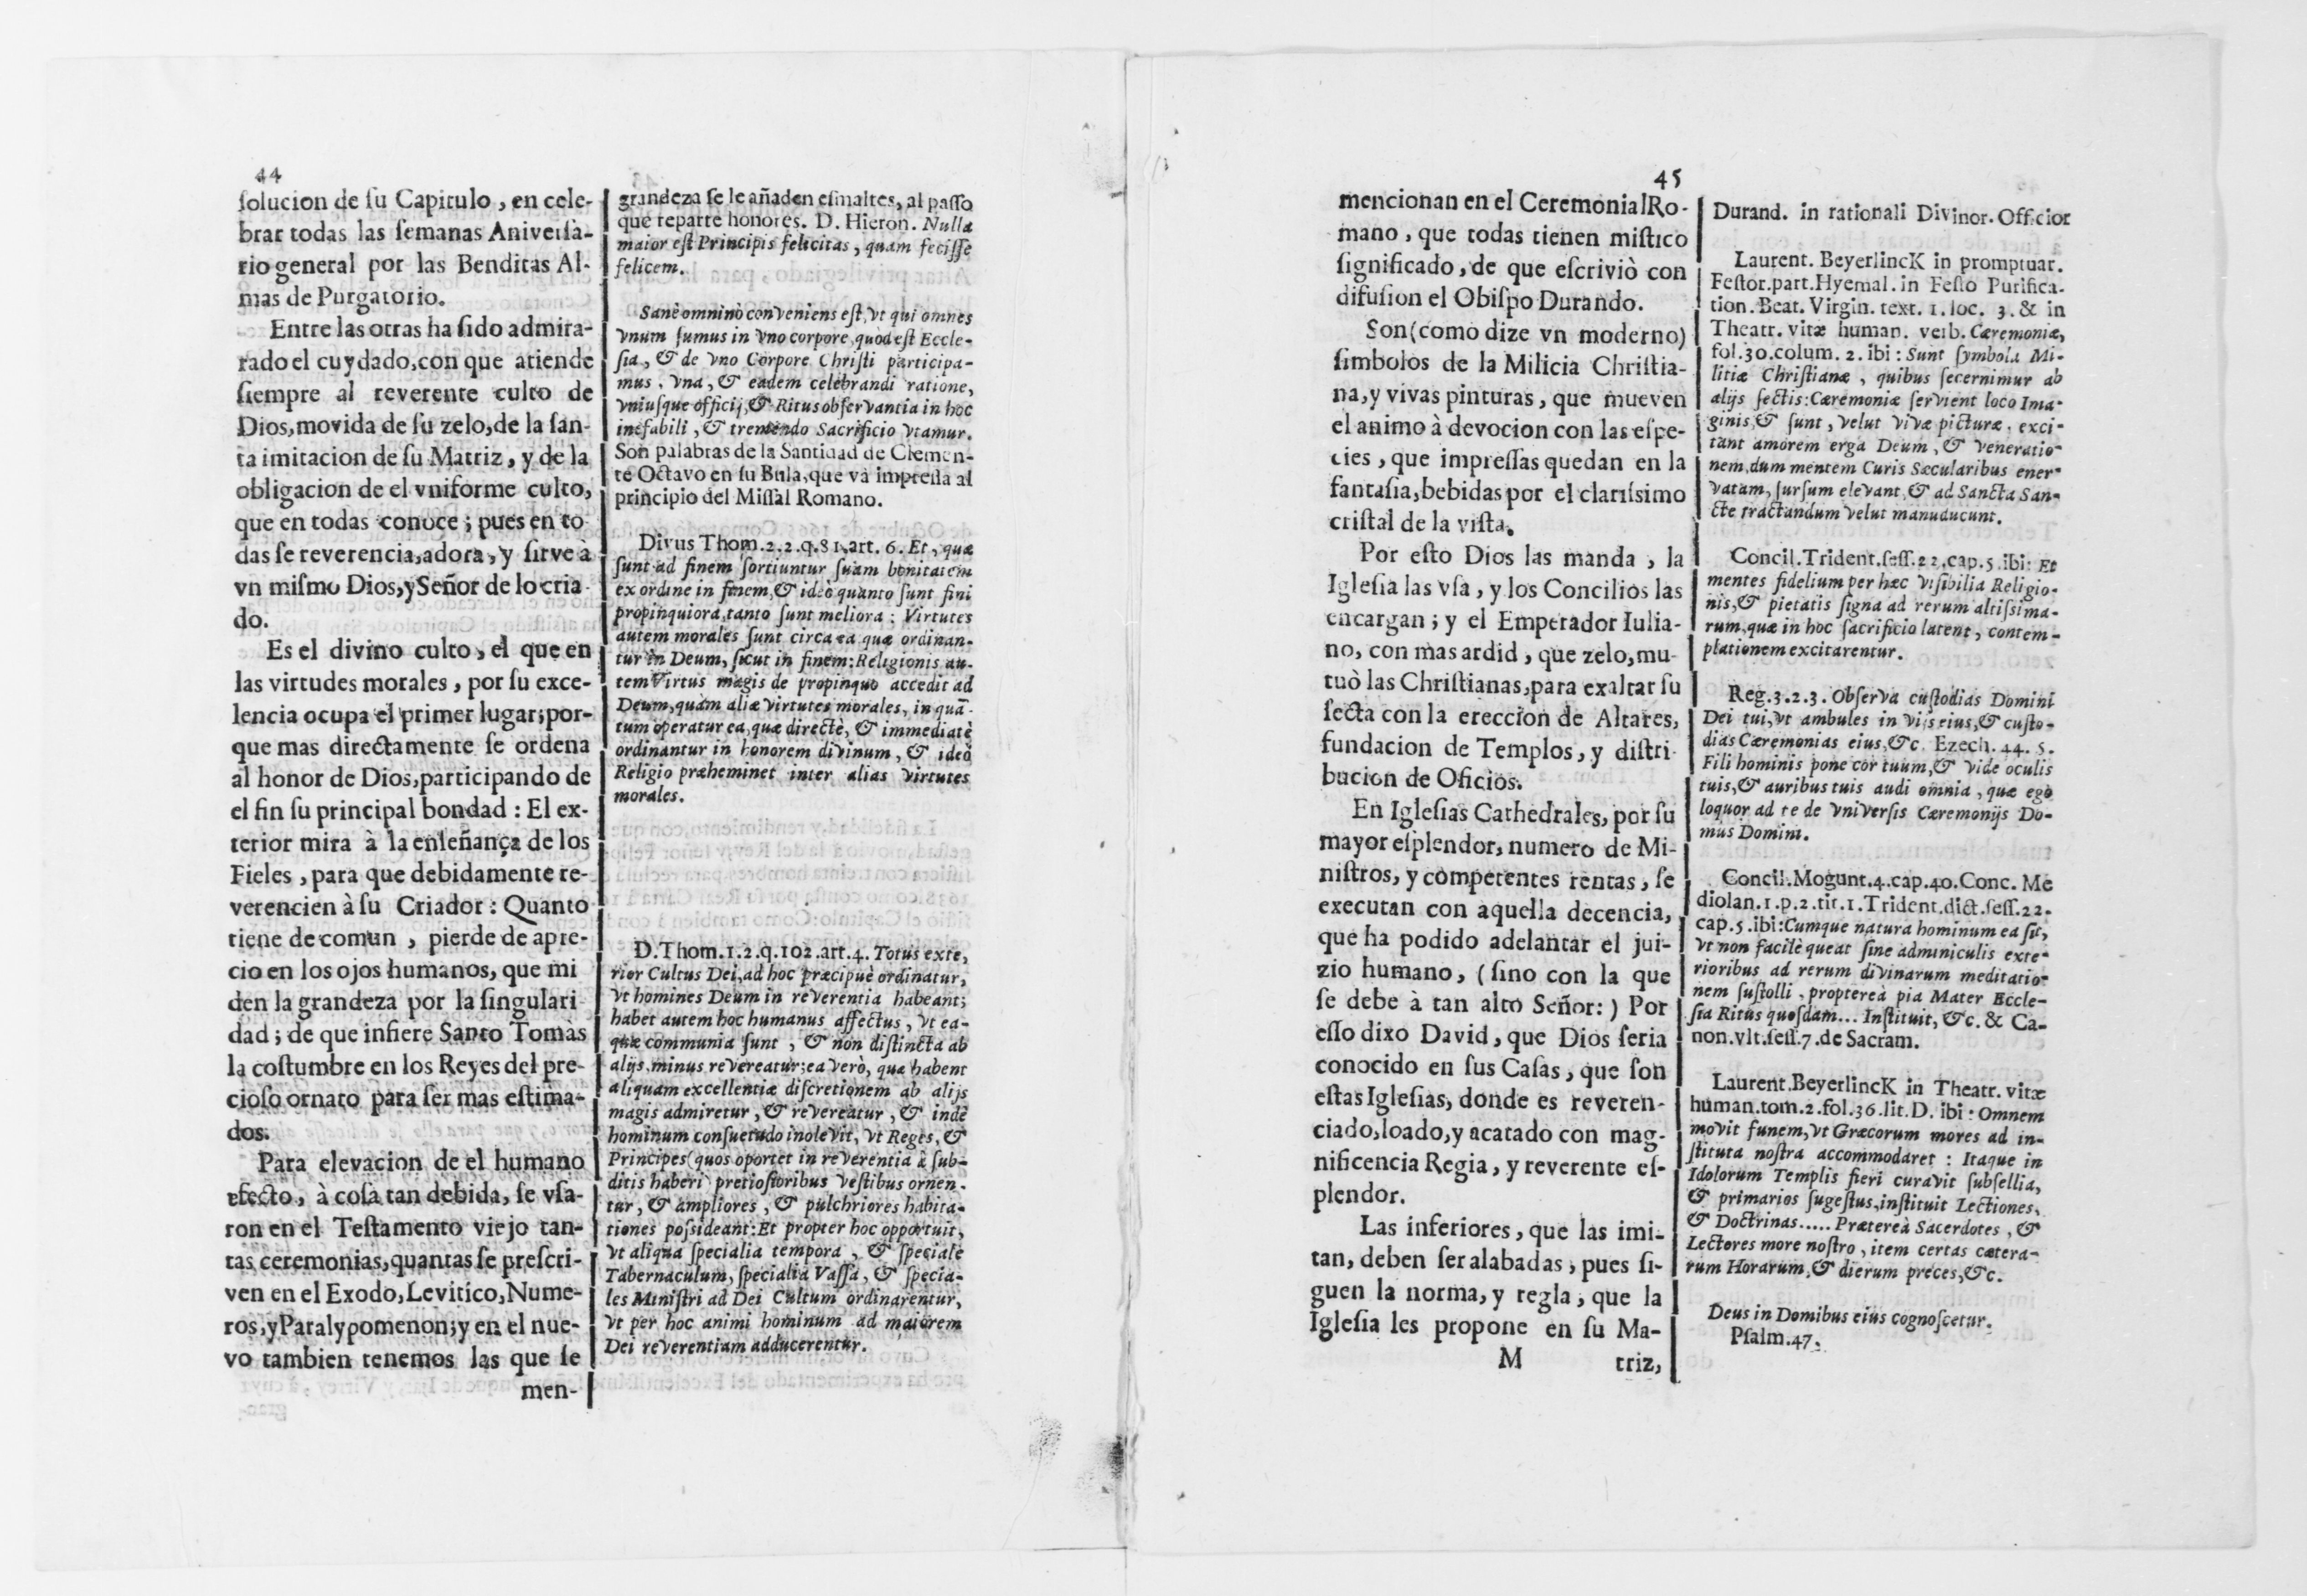 44
solucion de su Capitulo, en cele-
brar todas las semanas Aniversa-
rio general por las Benditas Al-
mas de Purgatorio.
Entre las otras ha sido admira-
rado el cuydado, con que atiende
siempre al reverente culto de
Dios, movida de su zelo, de la san-
ta imitacion de su Matriz, y de la
obligacion de el vniforme culto,
que en todas conoce; pues en to
das se reverencia, adora, y sirve à
vn mismo Dios, y Señor de lo cria-
do.
Es el divino culto, el que en
las virtudes morales, por su exce-
lencia ocupa el primer lugar; por-
que mas directamente se ordena
al honor de Dios, participando de
el fin su principal bondad: El ex-
terior mira à la enseñança de los
Fieles, para que debidamente re-
verencien à su Criador: Quanto
tiene de comun, pierde de apre-
cio en los ojos humanos, que mi
den la grandeza por la singulari
dad; de que infiere Santo Tomàs
la costumbre en los Reyes del pre-
cioso ornato para ser mas estima-
dos.
Para elevacion de el humano
efecto, à cosa tan debida, se vsa-
ron en el Testamento viejo tan-
tas ceremonias, quantas se prescri-
ven en el Exodo, Levitico, Nume-
ros, y Paralypomenon; y en el nue-
vo tambien tenemos las que se
men-
grandeza se le añaden esmaltes, al passo
que reparte honores. D. Hieron. Nulla
maior est Principis felicitas, quam fecisse
felicem.
Sanè omninò conveniens est, vt qui omnes
vnum sumus in vno corpore, quòd est Eccle-
sia, & de vno Corpore Christi participa-
mus, vna, & eadem celebrandi ratione,
vniusque officij, & Ritus observantia in hoc
inefabili, & tremendo Sacrificio vtamur.
Son palabras de la Santidad de Clemen-
te Octavo en su Bula, que và impressa al
principio del Missàl Romano.
Divus Thom. 2. 2. q. 81. art. 6. Et, quæ
sunt ad finem sortiuntur suam bonitatem
ex ordine in finem, & ideò quanto sunt fini
propinquiora, tanto sunt meliora: Virtutes
autem morales sunt circa ea quæ ordinan-
tur in Deum, sicut in finem: Religionis au-
tem Virtus magis de propinquo accedit ad
Deum, quàm aliæ virtutes morales, in quā-
tum operatur ea, quæ directè, & immediatè
ordinantur in honorem divinum, & ideò
Religio præheminet inter alias virtutes
morales.
D. Thom. 1. 2. q. 102. art. 4. Totus exte,
rior Cultus Dei, ad hoc præcipuè ordinatur,
vt homines Deum in reverentia habeant;
habet autem hoc humanus affectus, vt ea-
quæ communia sunt, & non distincta ab
alijs, minus revereatur; ea verò, quæ habent
aliquam excellentiæ discretionem ab alijs
magis admiretur, & revereatur, & indè
hominum consuetudo inolevit, vt Reges, &
Principes (quos oportet in reverentia à sub-
ditis haberi) pretiosioribus vestibus ornen-
tur, & ampliores, & pulchriores habita-
tiones possideant: Et propter hoc opportuit,
vt aliqua specialia tempora, & speciale
Tabernaculum, specialia Vassa, & specia-
les Ministri ad Dei Cultum ordinarentur,
vt per hoc animi hominum ad maiorem
Dei reverentiam adducerentur.
45
mencionan en el Ceremonial Ro-
mano, que todas tienen mistico
significado, de que escriviò con
difusion el Obispo Durando.
Son (como dize vn moderno)
simbolos de la Milicia Christia-
na, y vivas pinturas, que mueven
el animo à devocion con las espe-
cies, que impressas quedan en la
fantasia, bebidas por el clarissimo
cristal de la vista.
Por esto Dios las manda, la
Iglesia las vsa, y los Concilios las
encargan; y el Emperador Iulia-
no, con mas ardid, que zelo, mu-
tuò las Christianas, para exaltar su
secta con la ereccion de Altares,
fundacion de Templos, y distri-
bucion de Oficios.
En Iglesias Cathedrales, por su
mayor esplendor, numero de Mi-
nistros, y competentes rentas, se
executan con aquella decencia,
que ha podido adelantar el jui-
zio humano, (sino con la que
se debe à tan alto Señor:) Por
esso dixo David, que Dios seria
conocido en sus Casas, que son
estas Iglesias, donde es reveren-
ciado, loado, y acatado con mag-
nificencia Regia, y reverente es-
plendor.
Las inferiores, que las imi-
tan, deben ser alabadas, pues si-
guen la norma, y regla, que la
Iglesia les propone en su Ma-
M triz,
Durand. in rationali Divinor. Officior
Laurent. BeyerlincK in promptuar.
Festor. part. Hyemal. in Festo Purifica-
tion. Beat. Virgin. text. 1. loc. 3. & in
Theatr. vitæ human. verb. Cæremoniæ,
fol. 30. colum. 2. ibi: Sunt symbola Mi-
litiæ Christianæ, quibus secernimur ab
alijs sectis: Cæremoniæ servient loco Ima-
ginis, & sunt, velut vivæ picturæ, exci-
tant amorem erga Deum, & veneratio-
nem, dum mentem Curis Sæcularibus ener-
vatam, sursum elevant, & ad Sancta San-
cte tractandum velut manuducunt.
Concil. Trident. sess. 22. cap. 5. ibi: Et
mentes fidelium per hæc visibilia Religio-
nis, & pietatis signa ad rerum altissima-
rum, quæ in hoc sacrificio latent, contem-
plationem excitarentur.
Reg. 3. 2. 3. Observa custodias Domini
Dei tui, vt ambules in vijs eius, & custo-
dias Cæremonias eius, &c. Ezech. 44. 5.
Fili hominis pone cor tuum, & vide oculis
tuis, & auribus tuis audi omnia, quæ ego
loquor ad te de vniversis Cæremonijs Do-
mus Domini.
Concil. Mogunt. 4. cap. 40. Conc. Me
diolan. 1. p. 2. tit. 1. Trident. dict. sess. 22.
cap. 5. ibi: Cumque natura hominum ea sit,
vt non facilè queat sine adminiculis exte-
rioribus ad rerum divinarum meditatio-
nem sustolli, proptereà pia Mater Eccle-
sia Ritus quosdam... Instituit, &c. & Ca-
non. vlt. sess. 7. de Sacram.
Laurent. BeyerlincK in Theatr. vitæ
human. tom. 2. fol. 36. lit. D. ibi: Omnem
movit funem, vt Græcorum mores ad in-
stituta nostra accommodaret: Itaque in
Idolorum Templis fieri curavit subsellia,
& primarios sugestus, instituit Lectiones,
& Doctrinas..... Prætereà Sacerdotes, &
Lectores more nostro, item certas cætera-
rum Horarum, & dierum preces, &c.
Deus in Domibus eius cognoscetur.
Psalm. 47.